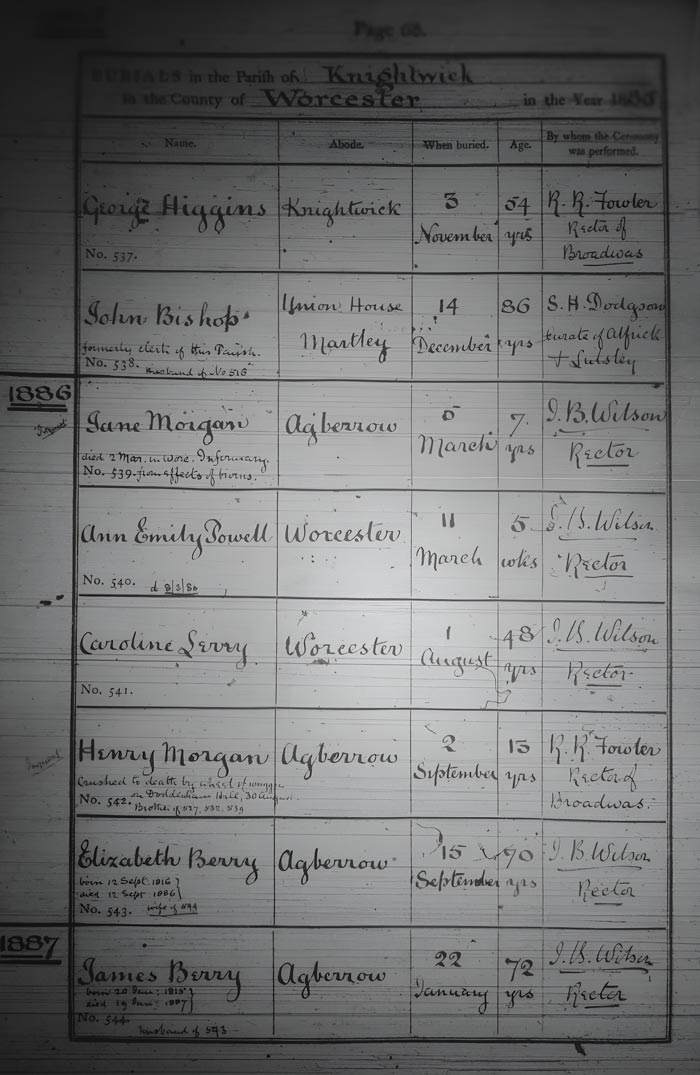 Page 68.
BURIALS in the Parish of Knightwick
in the County of Worcester in the Year 1885
Name. Abode. When buried. Age. By whom the Ceremony was performed.
George Higgins Knightwick 3 54 R. R. Fowler
November yrs Rector of
No. 537. Broadwas
John Bishop Union House 14 86 S. H. Dodgson
Martley December yrs curate of Alfrick
formerly clerk of this Parish. + Lulsley
No. 538. Husband of No 516
1886
Jane Morgan Agberrow 5 7 J. B. Wilson
March yrs Rector
died 2 Mar. in Worc. Infirmary.
No. 539. from effects of burns.
Ann Emily Powell Worcester 11 5 J. B. Wilson
March wks Rector
No. 540. d 8/3/86
Caroline Worcester 1 48 J. B. Wilson
August yrs Rector
No. 541.
Henry Morgan Agberrow 2 13 R. R. Fowler
September yrs Rector of
Crushed to death by wheel of waggon Broadwas.
No. 542. on Doddenham Hill, 30 August.
Brother of 527, 539
Elizabeth Berry Agberrow 15 70 J. B. Wilson
September yrs Rector
born 12 Sept. 1816
died 12 Sept 1886
No. 543. wife of 544
1887
James Berry Agberrow 22 72 J. B. Wilson
January yrs Rector
born 20 Jan: 1815
died 19 Jan: 1887
No. 544.
husband of 543